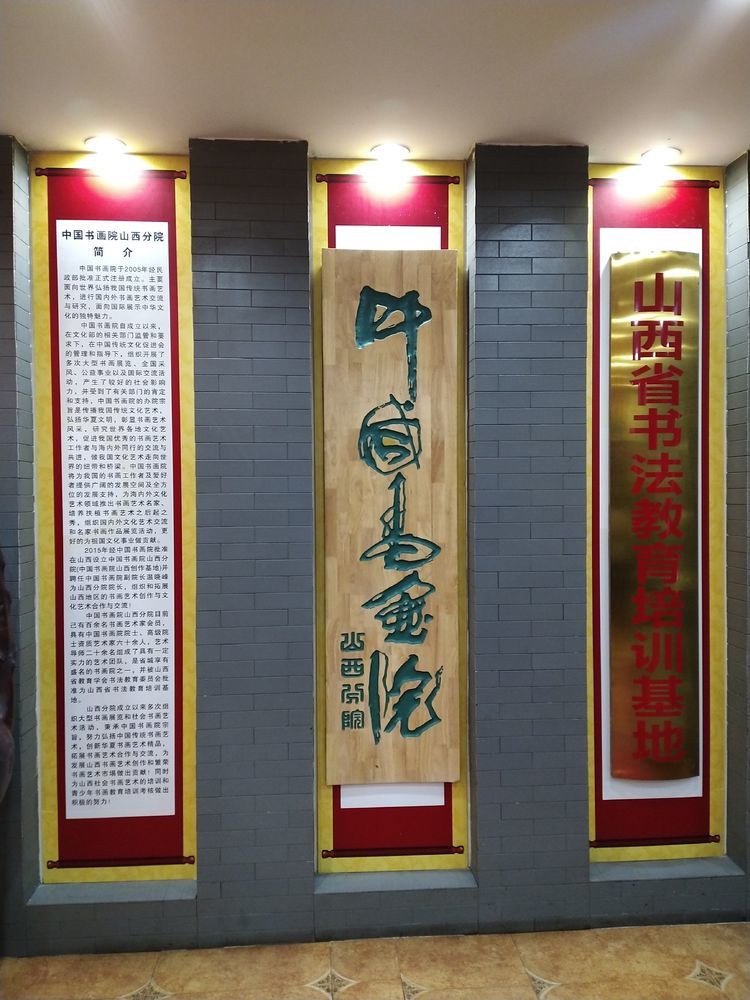 中国书画院山西分院
简 介
中国书画院于2005年经民
政部批准正式注册成立。主要
面向世界弘扬我国传统书画艺
术，进行国内外书画艺术交流
与研究，面向国际展示中华文
化的独特魅力。
中国书画院自成立以来，
在文化部的相关部门监管和要
求下，在中国传统文化促进会
的管理和指导下，组织开展了
多次大型书画展览、全国采
风、公益事业以及国际交流活
动，产生了较好的社会影响
力，并受到了有关部门的肯定
和支持，中国书画院的办院宗
旨是传播我国传统文化艺术，
弘扬华夏文明，彰显书画艺术
风采，研究世界各地文化艺
术，促进我国优秀的书画艺术
工作者与海内外同行的交流与
共进，做我国文化艺术走向世
界的纽带和桥梁。中国书画院
将为我国的书画工作者及爱好
者提供广阔的发展空间及全方
位的发展支持，为海内外文化
艺术领域推出书画艺术名家、
培养扶植书画艺术之后起之
秀，组织国内外文化艺术交流
和名家书画作品展览活动，更
好的为祖国文化事业做贡献。
2015年经中国书画院批准
在山西设立中国书画院山西分
院(中国书画院山西创作基地)并
聘任中国书画院副院长温晓峰
为山西分院院长，组织和拓展
山西地区的书画艺术创作与文
化艺术合作与交流！
中国书画院山西分院目前
已有百余名书画艺术家会员，
具有中国书画院院士、高级院
士资质艺术家六十余人，艺术
导师二十余名组成了具有一定
实力的艺术团队，是省城享有
盛名的书画院之一。并被山西
省教育学会书法教育委员会批
准为山西省书法教育培训基
地。
山西分院成立以来多次组
织大型书画展览和社会书画艺
术活动，秉承中国书画院宗
旨，努力弘扬中国传统书画艺
术，创新华夏书画艺术精品，
拓展书画艺术合作与交流，为
发展山西书画艺术创作和繁荣
书画艺术市場做出贡献！同时
为山西社会书画艺术的培训和
青少年书画教育培训考核做出
积极的努力！
中国书画院
山西分院
山西省书法教育培训基地